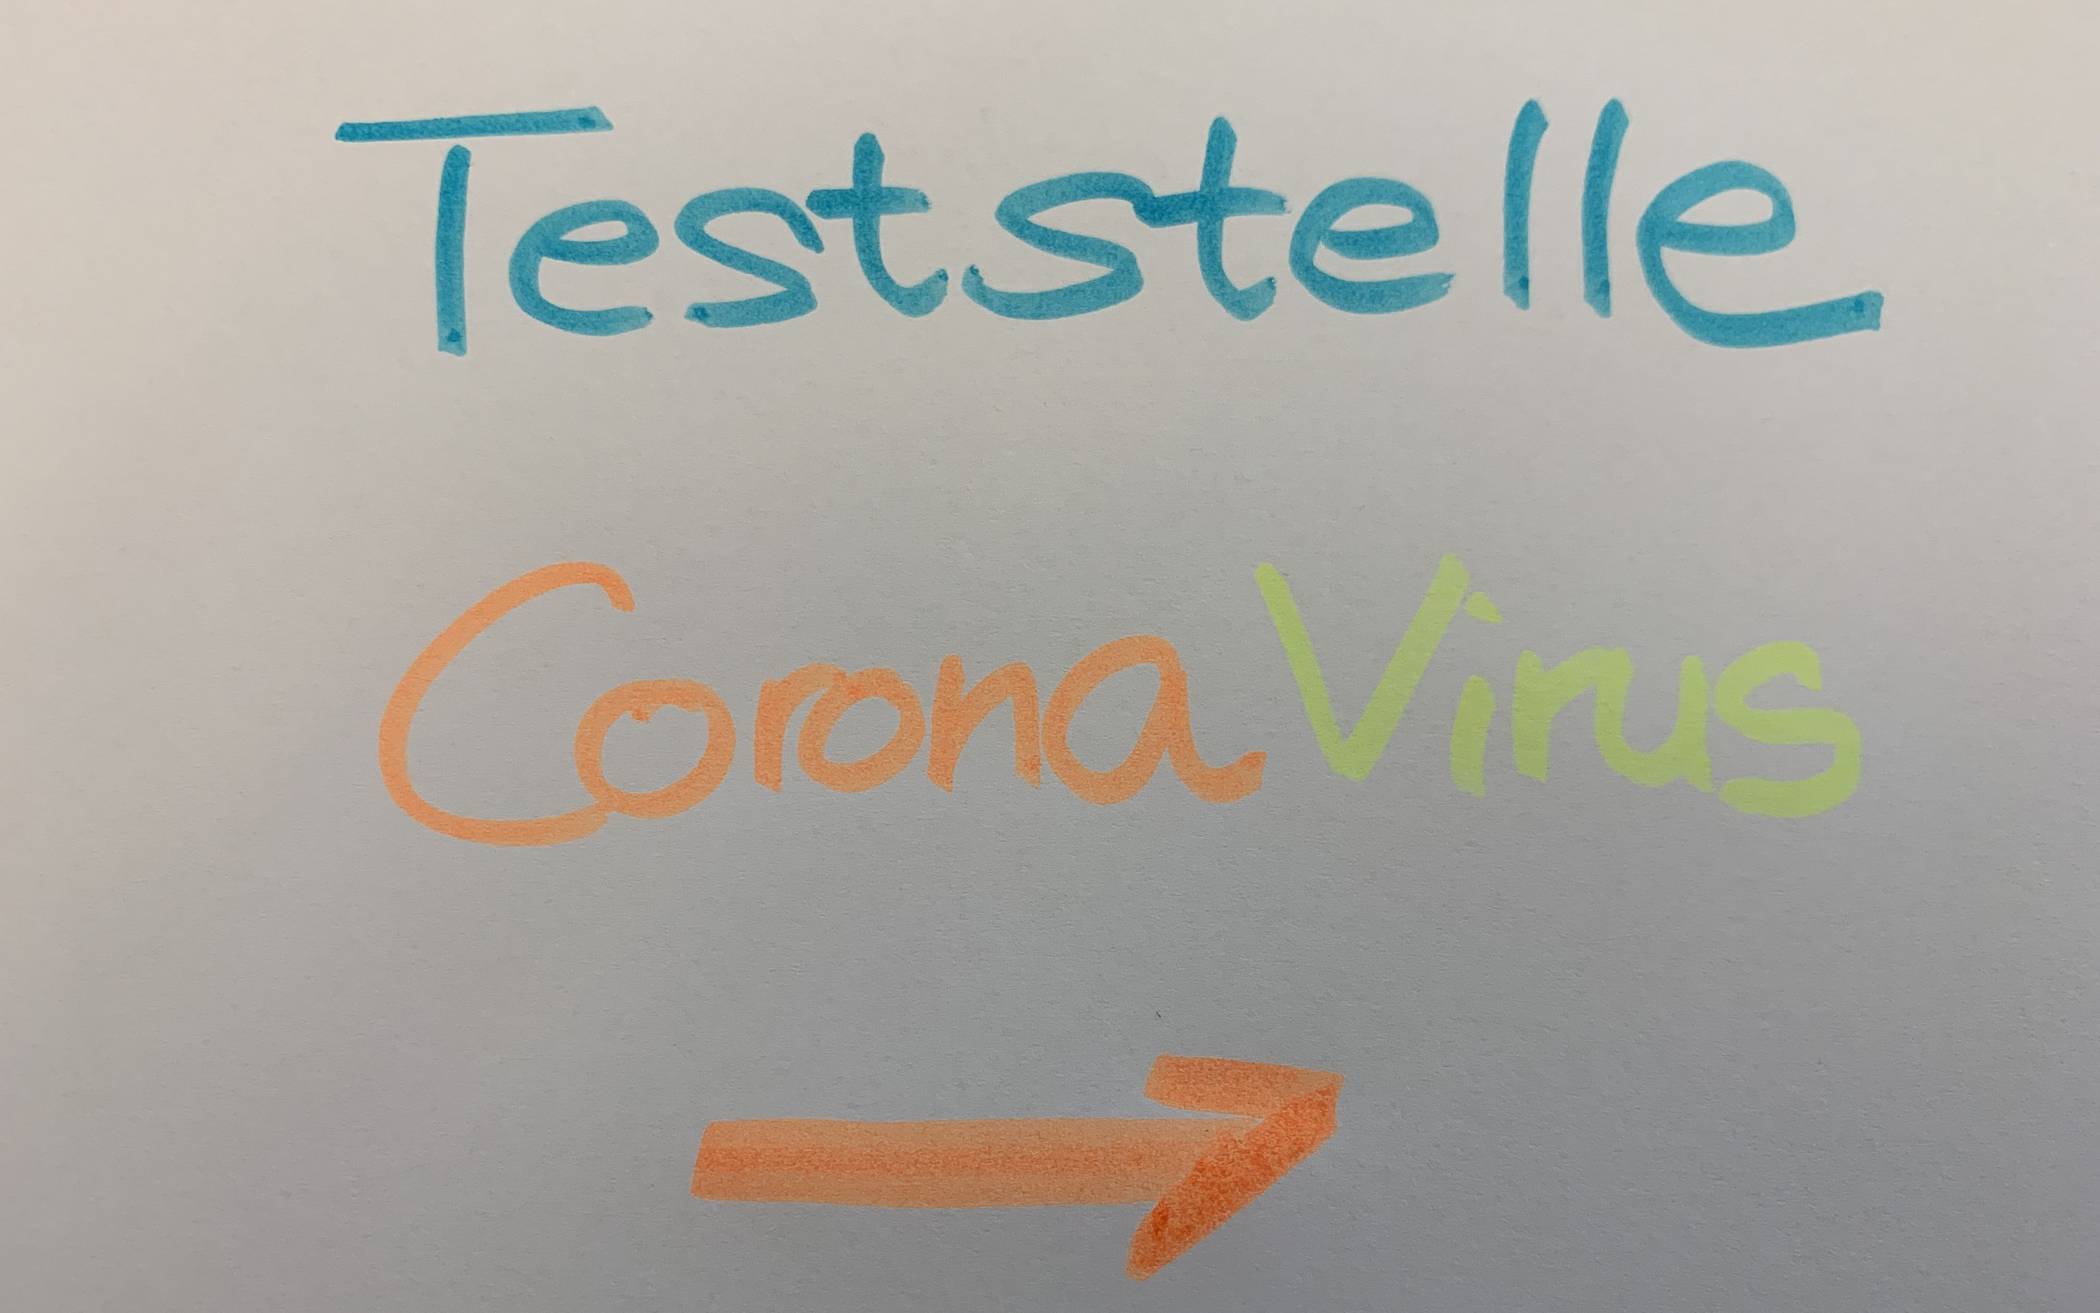 Teststelle
CoronaVirus